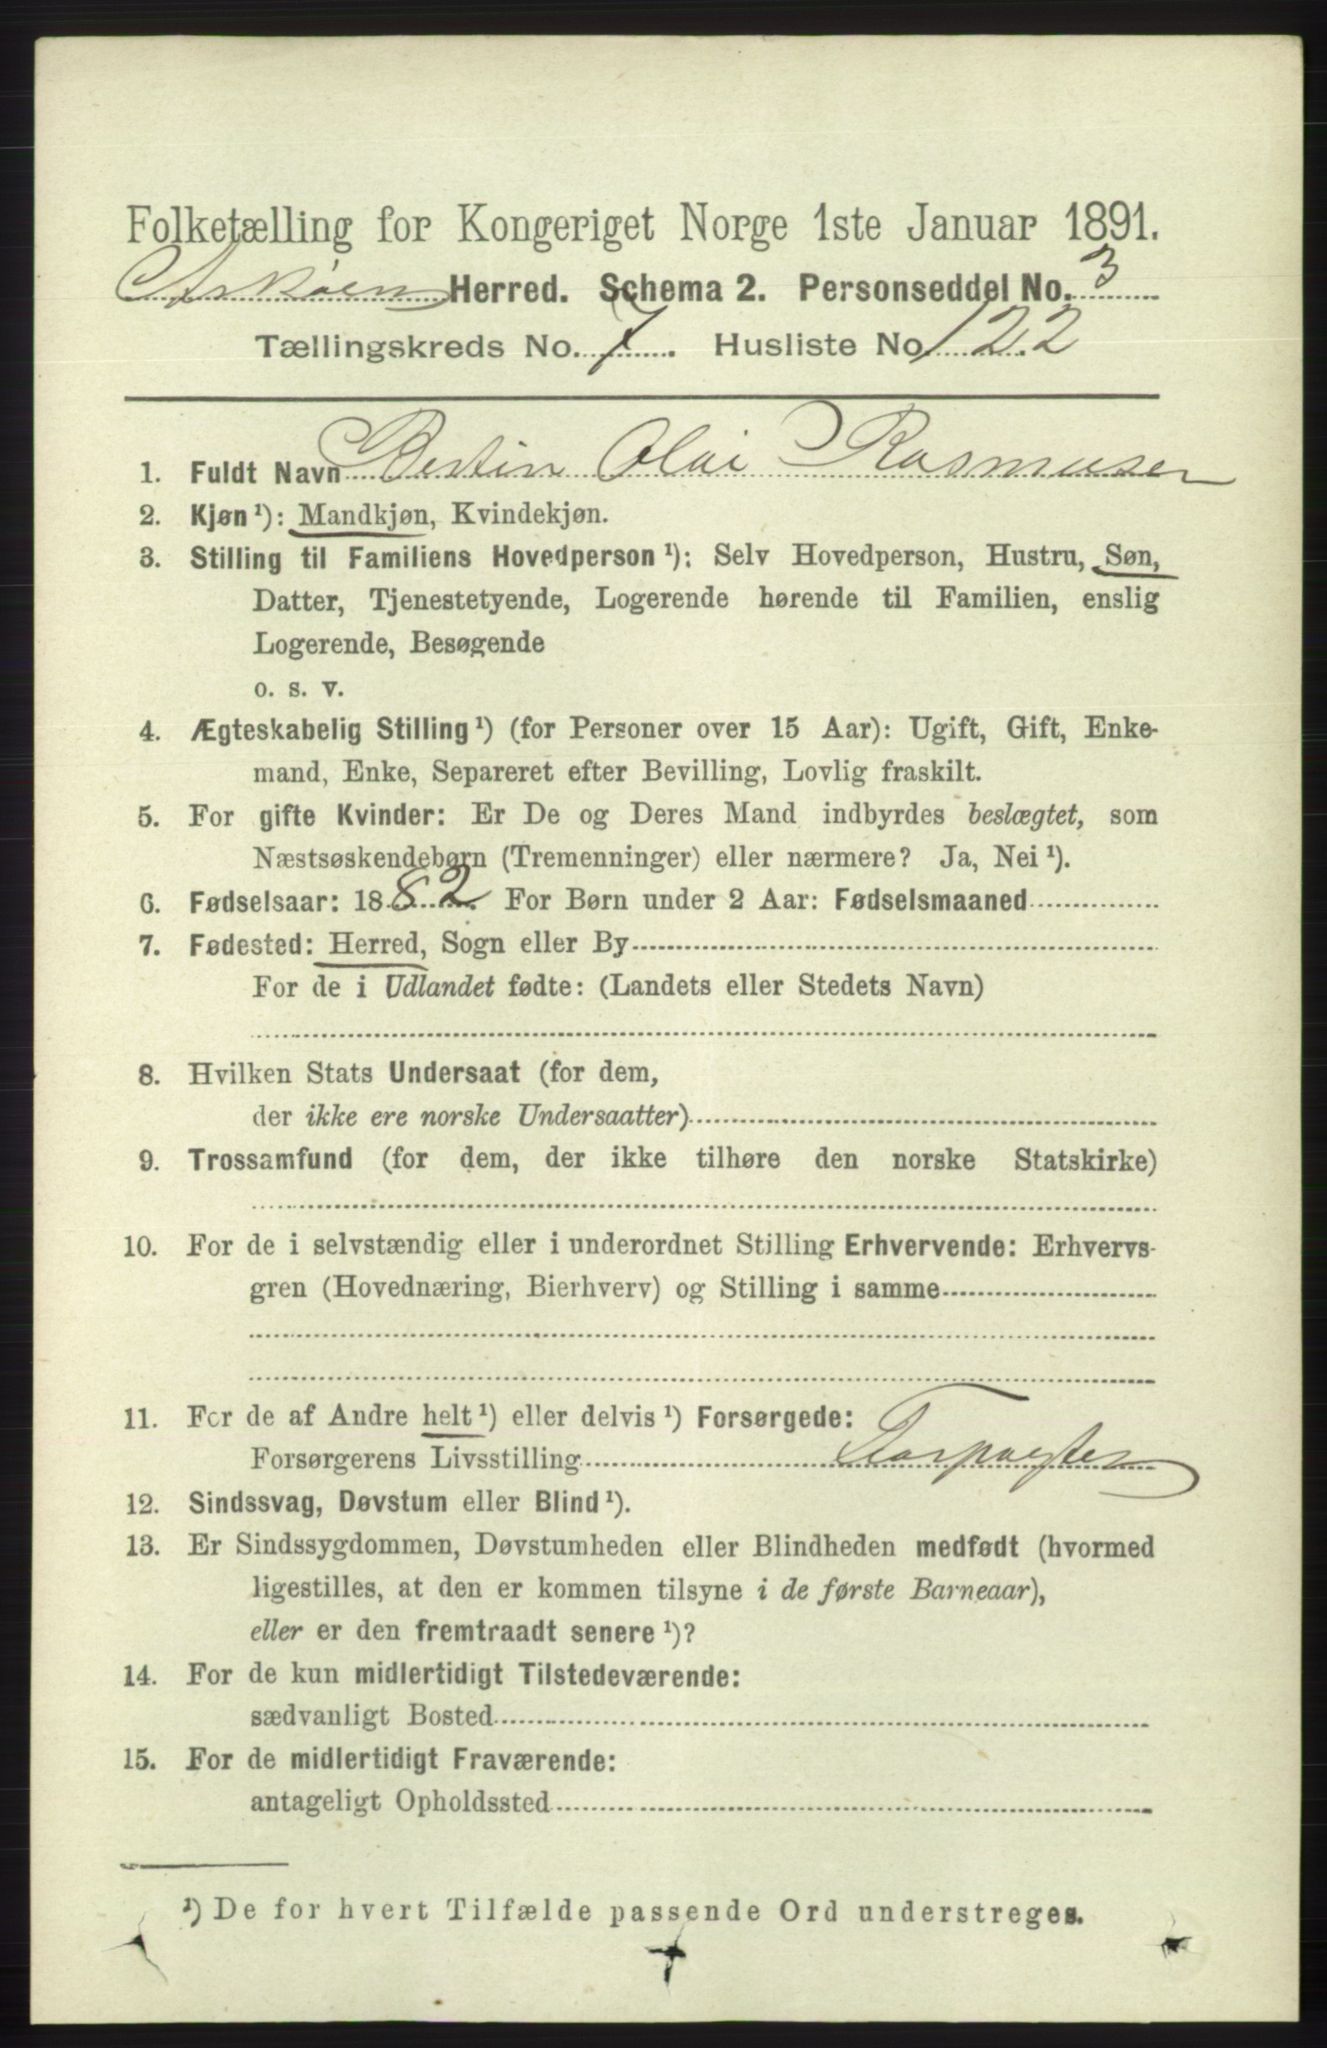 Folketælling for Kongeriget Norge 1ste Januar 1891.
Askøen Herred. Schema 2. Personseddel No. 3
Tællingskreds No. 7. Husliste No 122
1. Fuldt Navn Bertin Olai Rasmussen
2. Kjøn ¹): Mandkjøn, Kvindekjøn.
3. Stilling til Familiens Hovedperson ¹): Selv Hovedperson, Hustru, Søn,
Datter, Tjenestetyende, Logerende hørende til Familien, enslig
Logerende, Besøgende
o. s. v.
4. Ægteskabelig Stilling ¹) (for Personer over 15 Aar): Ugift, Gift, Enke-
mand, Enke, Separeret efter Bevilling, Lovlig fraskilt.
5. For gifte Kvinder: Er De og Deres Mand indbyrdes beslægtet, som
Næstsøskendebørn (Tremenninger) eller nærmere? Ja, Nei ¹).
6. Fødselsaar: 1882. For Børn under 2 Aar: Fødselsmaaned
7. Fødested: Herred, Sogn eller By
For de i Udlandet fødte: (Landets eller Stedets Navn)
8. Hvilken Stats Undersaat (for dem,
der ikke ere norske Undersaatter)
9. Trossamfund (for dem, der ikke tilhøre den norske Statskirke)
10. For de i selvstændig eller i underordnet Stilling Erhvervende: Erhvervs-
gren (Hovednæring, Bierhverv) og Stilling i samme
11. For de af Andre helt ¹) eller delvis ¹) Forsørgede:
Forsørgerens Livsstilling
12. Sindssvag, Døvstum eller Blind ¹).
13. Er Sindssygdommen, Døvstumheden eller Blindheden medfødt (hvormed
ligestilles, at den er kommen tilsyne i de første Barneaar),
eller er den fremtraadt senere ¹)?
14. For de kun midlertidigt Tilstedeværende:
sædvanligt Bosted
15. For de midlertidigt Fraværende:
antageligt Opholdssted
¹) De for hvert Tilfælde passende Ord understreges.